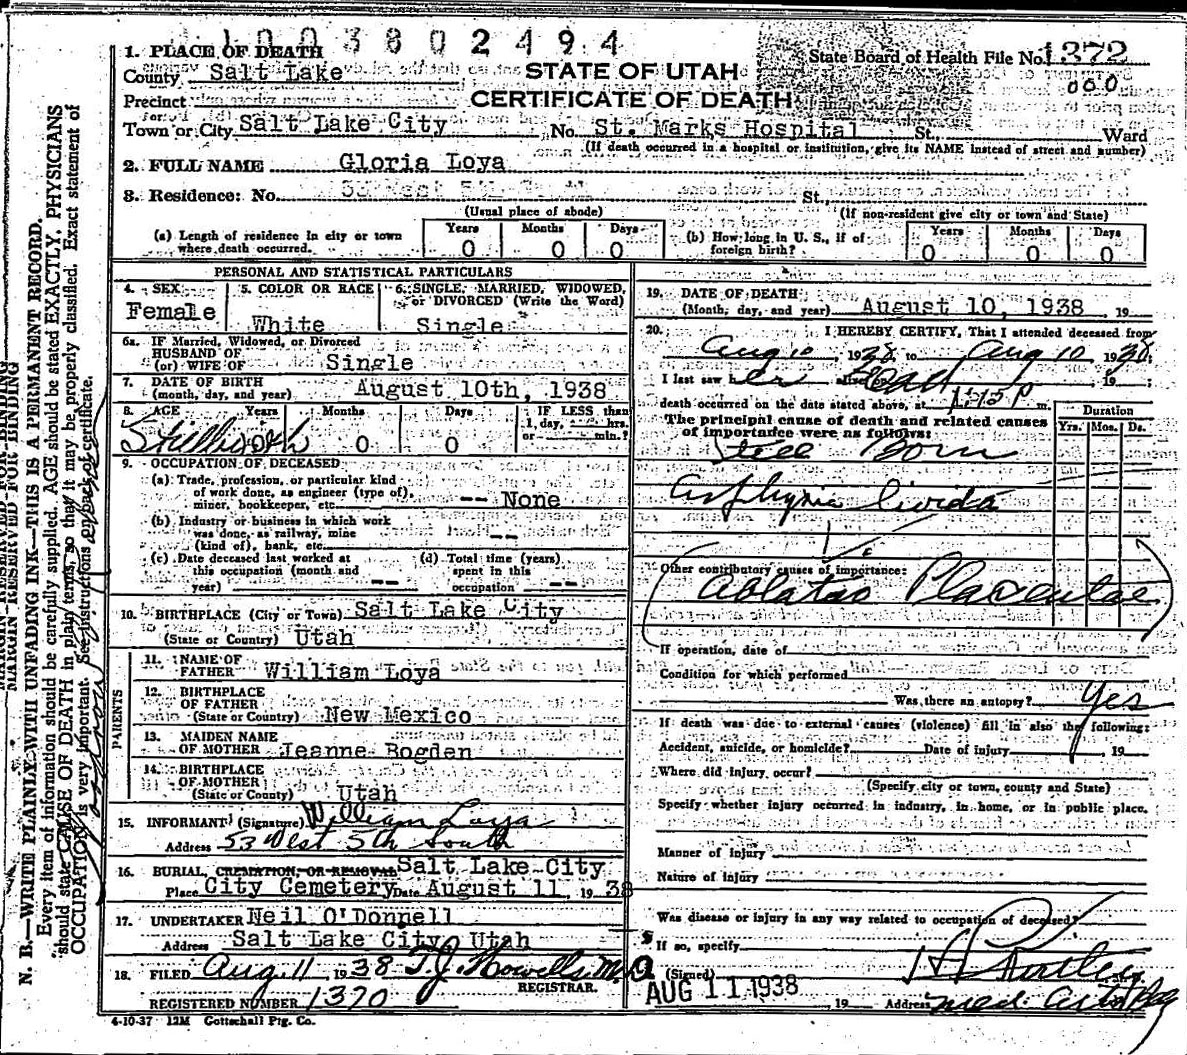 1003802494
1. PLACE OF DEATH
State Board of Health File No. 1372
County Salt Lake
STATE OF UTAH
000
Precinct
CERTIFICATE OF DEATH
Town or City Salt Lake City No. St. Marks Hospital St., Ward
(If death occurred in a hospital or institution, give its NAME instead of street and number)
2. FULL NAME Gloria Loya
3. Residence: No. St.,
(Usual place of abode) (If non-resident give city or town and State)
(a) Length of residence in city or town where death occurred. Years 0 Months 0 Days 0
(b) How long in U. S., if of foreign birth? Years 0 Months 0 Days 0
PERSONAL AND STATISTICAL PARTICULARS
4. SEX Female
5. COLOR OR RACE White
6. SINGLE, MARRIED, WIDOWED, or DIVORCED (Write the Word) Single
6a. IF Married, Widowed, or Divorced
HUSBAND OF
(or) WIFE OF Single
7. DATE OF BIRTH
(month, day, and year) August 10th, 1938
8. AGE Years Months Days IF LESS than
1, day, hrs.
Stillbirth 0 0 or min.?
9. OCCUPATION OF DECEASED
(a) Trade, profession, or particular kind
of work done, as engineer (type of),
miner, bookkeeper, etc. -- None
(b) Industry or business in which work
was done, as railway, mine
(kind of), bank, etc. --
(c) Date deceased last worked at
this occupation (month and
year) --
(d) Total time (years)
spent in this
occupation --
10. BIRTHPLACE (City or Town) Salt Lake City
(State or Country) Utah
PARENTS
11. NAME OF
FATHER William Loya
12. BIRTHPLACE
OF FATHER
(State or Country) New Mexico
13. MAIDEN NAME
OF MOTHER Jeanne Bogden
14. BIRTHPLACE
OF MOTHER
(State or County) Utah
15. INFORMANT (Signature) William Loya
Address 53 West 5th South
16. BURIAL, CREMATION, OR REMOVAL Salt Lake City
Place City Cemetery Date August 11, 1938
17. UNDERTAKER Neil O'Donnell
Address Salt Lake City, Utah
18. FILED Aug. 11 1938 T.J. Howells M.D.
REGISTRAR.
REGISTERED NUMBER 1370
4-10-37 12M Gottschall Ptg. Co.
19. DATE OF DEATH
(Month, day, and year) August 10, 1938 , 19
20. I HEREBY CERTIFY, That I attended deceased from
Aug 10, 1938, to Aug 10, 1938;
I last saw her alive Dead , 19 ;
death occurred on the date stated above, at 1:45 P m.
The principal cause of death and related causes
of importance were as follows:
Duration
Yrs. Mos. Ds.
Still Born
Asphyxia livida
Other contributory causes of importance:
Ablatao Placentae
If operation, date of
Condition for which performed
Was there an autopsy? Yes
If death was due to external causes (violence) fill in also the following:
Accident, suicide, or homicide? Date of injury 19
Where did injury occur?
(Specify city or town, county and State)
Specify whether injury occurred in industry, in home, or in public place.
Manner of injury
Nature of injury
Was disease or injury in any way related to occupation of deceased?
If so, specify
(Signed)
AUG 11 1938 , 19 Address Med. Arts Bldg
MARGIN RESERVED FOR BINDING
N. B.—WRITE PLAINLY WITH UNFADING INK—THIS IS A PERMANENT RECORD.
Every item of information should be carefully supplied. AGE should be stated EXACTLY. PHYSICIANS
should state CAUSE OF DEATH in plain terms, so that it may be properly classified. Exact statement of
OCCUPATION is very important. See instructions on back of certificate.